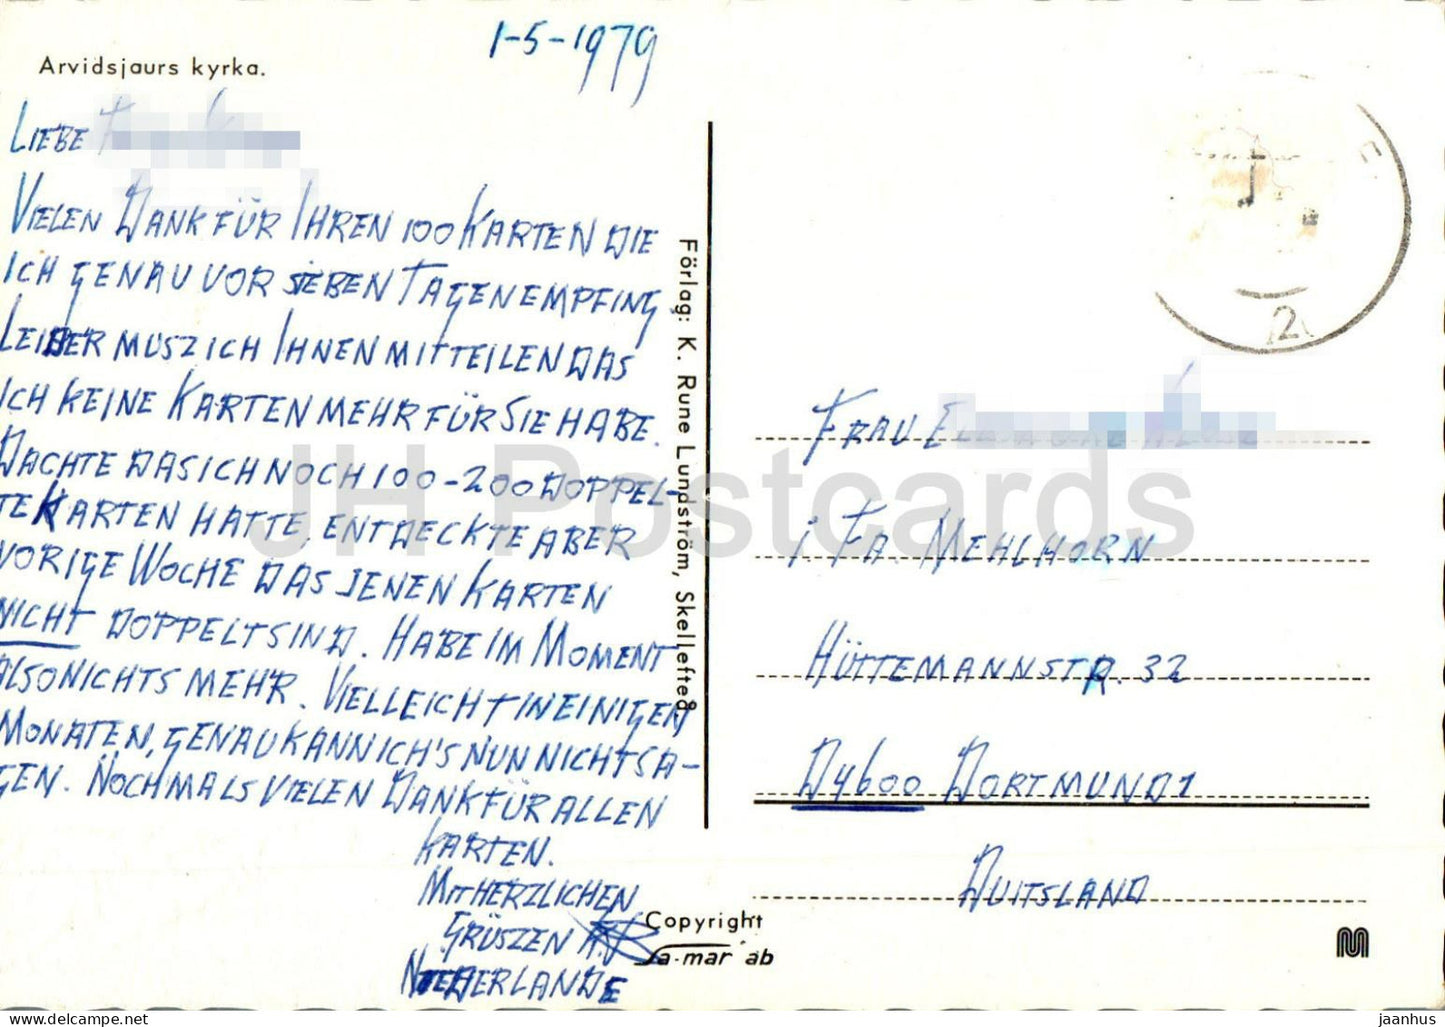 1-5-1979
Arvidsjaurs kyrka.
LIEBE
VIELEN DANK FÜR IHREN 100 KARTEN DIE
ICH GENAU VOR SIEBEN TAGEN EMPFING
LEIDER MUSZ ICH IHNEN MITTEILEN DAS
ICH KEINE KARTEN MEHR FÜR SIE HABE.
DACHTE DAS ICH NOCH 100-200 DOPPEL-
TE KARTEN HATTE, ENTDECKTE ABER
VORIGE WOCHE DAS JENEN KARTEN
NICHT DOPPELT SIND. HABE IM MOMENT
ALSO NICHTS MEHR. VIELLEICHT IN EINIGEN
MONATEN, GENAU KANN ICH'S NUN NICHT SA-
GEN. NOCHMALS VIELEN DANK FÜR ALLEN
KARTEN.
MIT HERZLICHEN
GRÜSZEN
NIEDERLANDE
Förlag: K. Rune Lundström, Skellefteå
Copyright
a-mar ab
FRAU
i. FA. MEHLHORN
HÜTTEMANNSTR. 32
D4600 DORTMUND 1
DUITSLAND
M
JH Postcards
https://www.delcampe.net
jaanhus